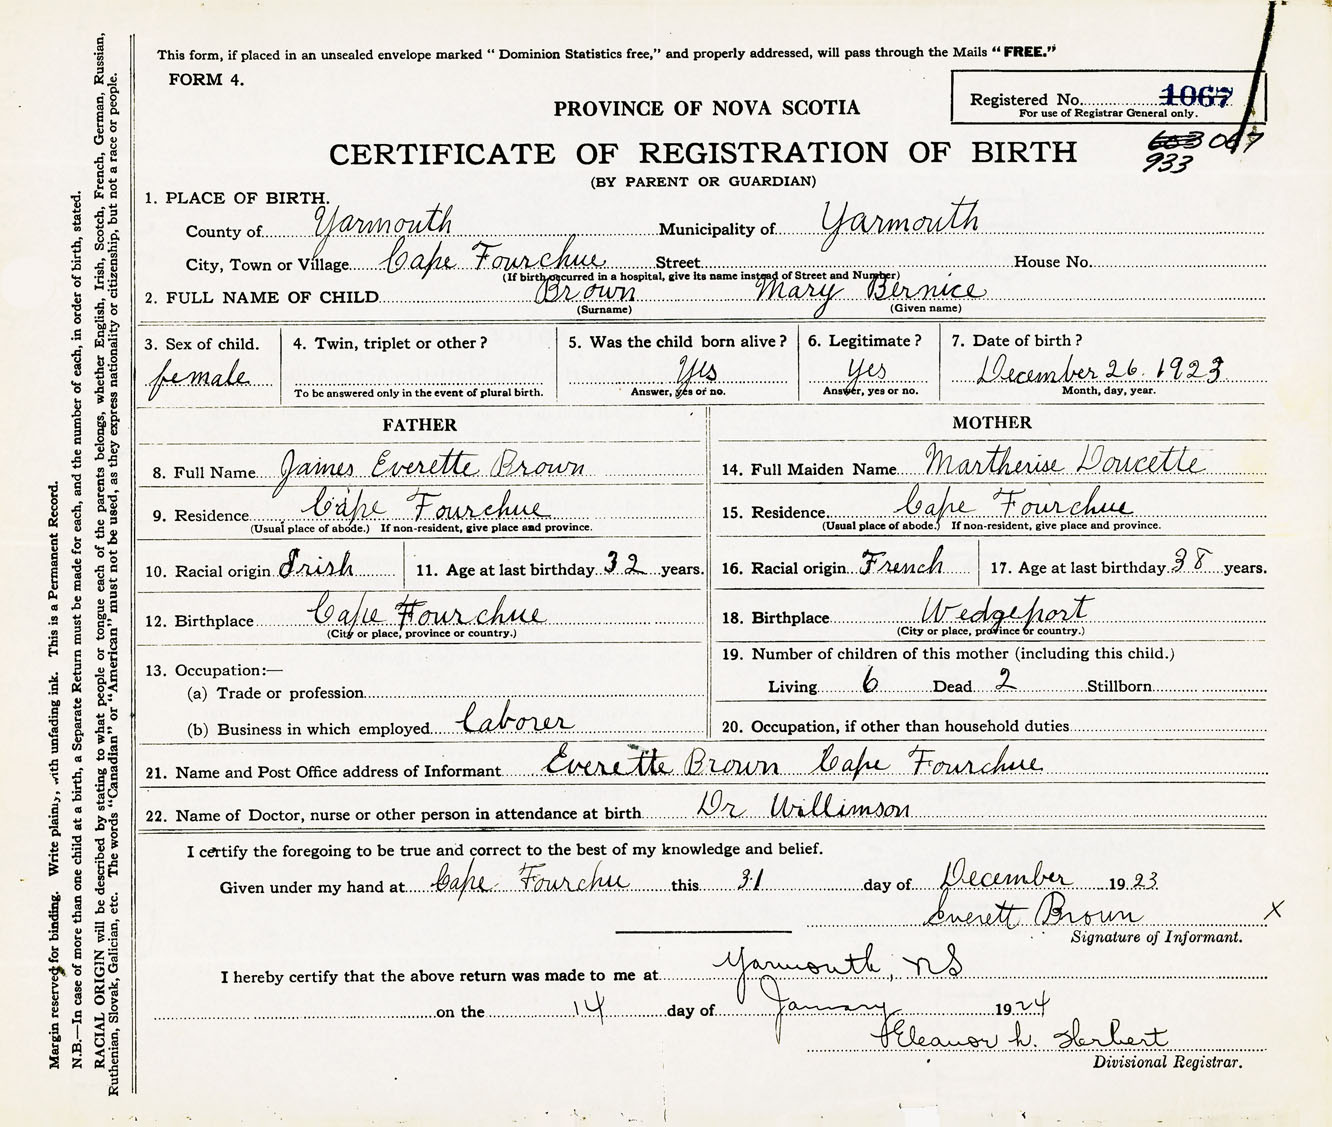 This form, if placed in an unsealed envelope marked “ Dominion Statistics free,” and properly addressed, will pass through the Mails “ FREE.”
FORM 4.
Registered No. 1067
For use of Registrar General only.
067
933
PROVINCE OF NOVA SCOTIA
CERTIFICATE OF REGISTRATION OF BIRTH
(BY PARENT OR GUARDIAN)
1. PLACE OF BIRTH.
County of Yarmouth Municipality of Yarmouth
City, Town or Village Cape Fourchue Street House No.
(If birth occurred in a hospital, give its name instead of Street and Number)
2. FULL NAME OF CHILD Brown Mary Bernice
(Surname) (Given name)
3. Sex of child. 4. Twin, triplet or other ? 5. Was the child born alive ? 6. Legitimate ? 7. Date of birth ?
female Yes Yes December 26. 1923
To be answered only in the event of plural birth. Answer, yes or no. Answer, yes or no. Month, day, year.
FATHER
8. Full Name James Everette Brown
9. Residence Cape Fourchue
(Usual place of abode.) If non-resident, give place and province.
10. Racial origin Irish 11. Age at last birthday 32 years.
12. Birthplace Cape Fourchue
(City or place, province or country.)
13. Occupation:—
(a) Trade or profession
(b) Business in which employed Laborer
MOTHER
14. Full Maiden Name Martherise Doucette
15. Residence Cape Fourchue
(Usual place of abode.) If non-resident, give place and province.
16. Racial origin French 17. Age at last birthday 38 years.
18. Birthplace Wedgeport
(City or place, province or country.)
19. Number of children of this mother (including this child.)
Living 6 Dead 2 Stillborn
20. Occupation, if other than household duties
21. Name and Post Office address of Informant Everette Brown Cape Fourchue
22. Name of Doctor, nurse or other person in attendance at birth Dr Willimson
I certify the foregoing to be true and correct to the best of my knowledge and belief.
Given under my hand at Cape Fourchu this 31 day of December 1923
Everett Brown X
Signature of Informant.
I hereby certify that the above return was made to me at Yarmouth, NS
on the 14 day of January 1924
Eleanor L. Herbert
Divisional Registrar.
Margin reserved for binding. Write plainly, with unfading ink. This is a Permanent Record.
N.B.—In case of more than one child at a birth, a Separate Return must be made for each, and the number of each, in order of birth, stated.
RACIAL ORIGIN will be described by stating to what people or tongue each of the parents belongs, whether English, Irish, Scotch, French, German, Russian,
Ruthenian, Slovak, Galician, etc. The words “Canadian” or “American” must not be used, as they express nationality or citizenship, but not a race or people.